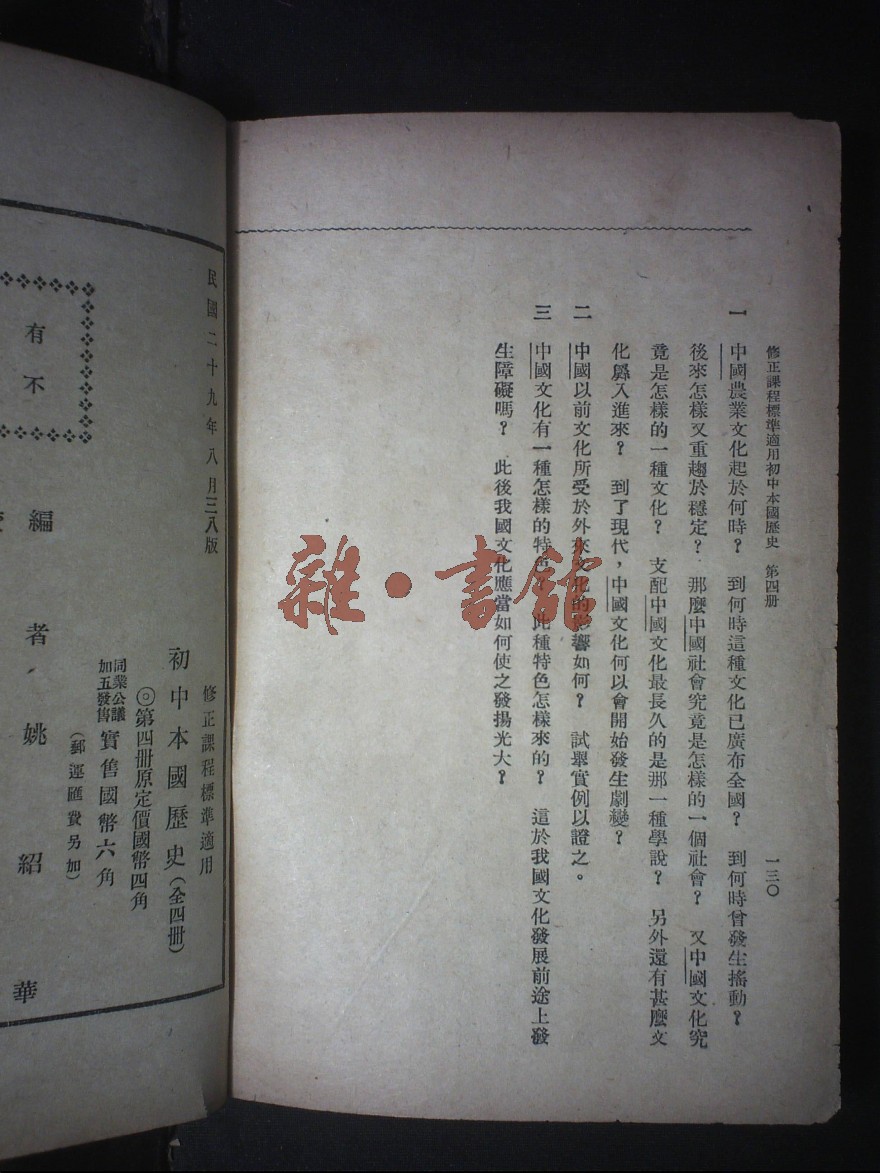 修正課程標準適用初中本國歷史　第四册
一三〇
一　中國農業文化起於何時？　到何時這種文化已廣布全國？　到何時曾發生搖動？
後來怎樣又重趨於穩定？　那麼中國社會究竟是怎樣的一個社會？　又中國文化究
竟是怎樣的一種文化？　支配中國文化最長久的是那一種學說？　另外還有甚麼文
化羼入進來？　到了現代，中國文化何以會開始發生劇變？
二　中國以前文化所受於外來文化的影響如何？　試舉實例以證之。
三　中國文化有一種怎樣的特色？　此種特色怎樣來的？　這於我國文化發展前途上發
生障礙嗎？　此後我國文化應當如何使之發揚光大？
雜·書館
民國二十九年八月三八版
修正課程標準適用
初中本國歷史（全四册）
◎第四册原定價國幣四角
同業公議
加五發售
實售國幣六角
（郵運匯費另加）
編者　姚紹華
有不